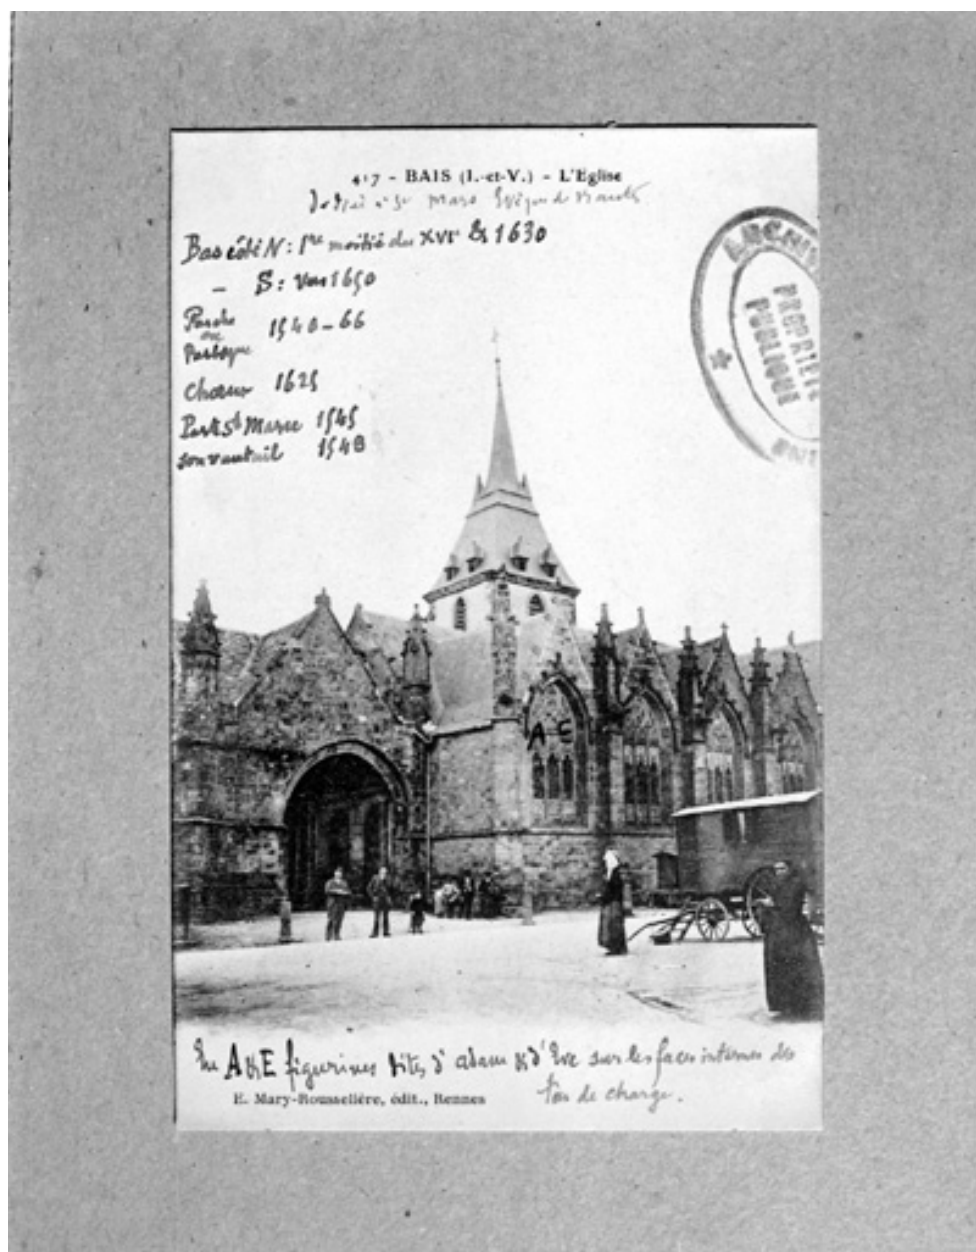 417 - BAIS (I.-et-V.) - L'Eglise
Dédiée à St Mars Evêque de Nantes
Bas côté N : 1re moitié du XVIe & 1630
- S : vers 1650
Porche 1540-66
ou
Chœur 1625
Porte St Marc 1545
son vantail 1548
PROPRIÉTÉ
PUBLIQUE
A E
En A & E figurines dites d'adam & d'Eve sur les faces internes des
de charge.
E. Mary-Rousselière, édit., Rennes